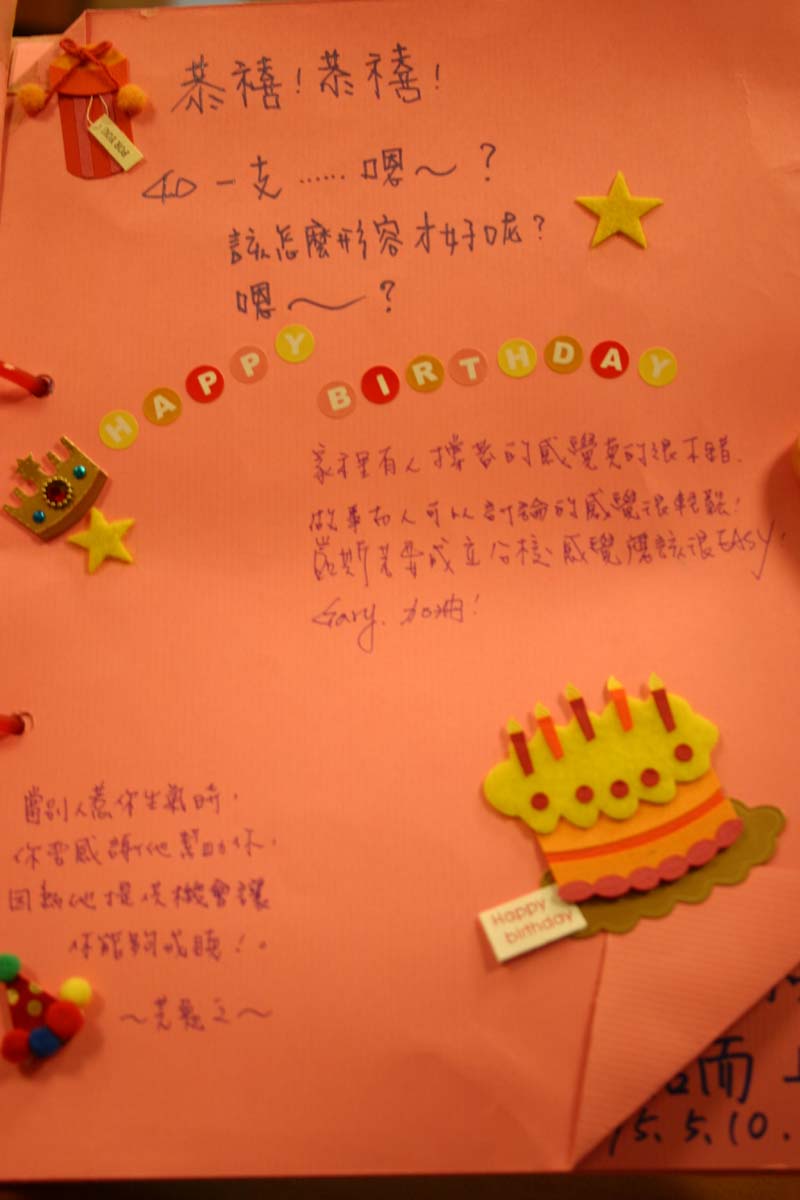 恭禧！恭禧！
FOR YOU!
40一支……嗯～？
該怎麼形容才好呢？
嗯～？
HAPPY BIRTHDAY
家裡有人撐著的感覺真的很不錯.
做事有人可以討論的感覺很輕鬆!
若要成立分校,感覺應該很EASY,
Gary. 加油!
當別人惹你生氣時,
你要感謝他幫助你,
因為他提供機會讓
你能夠成聽!。
Happy
birthday
而
5.5.10.